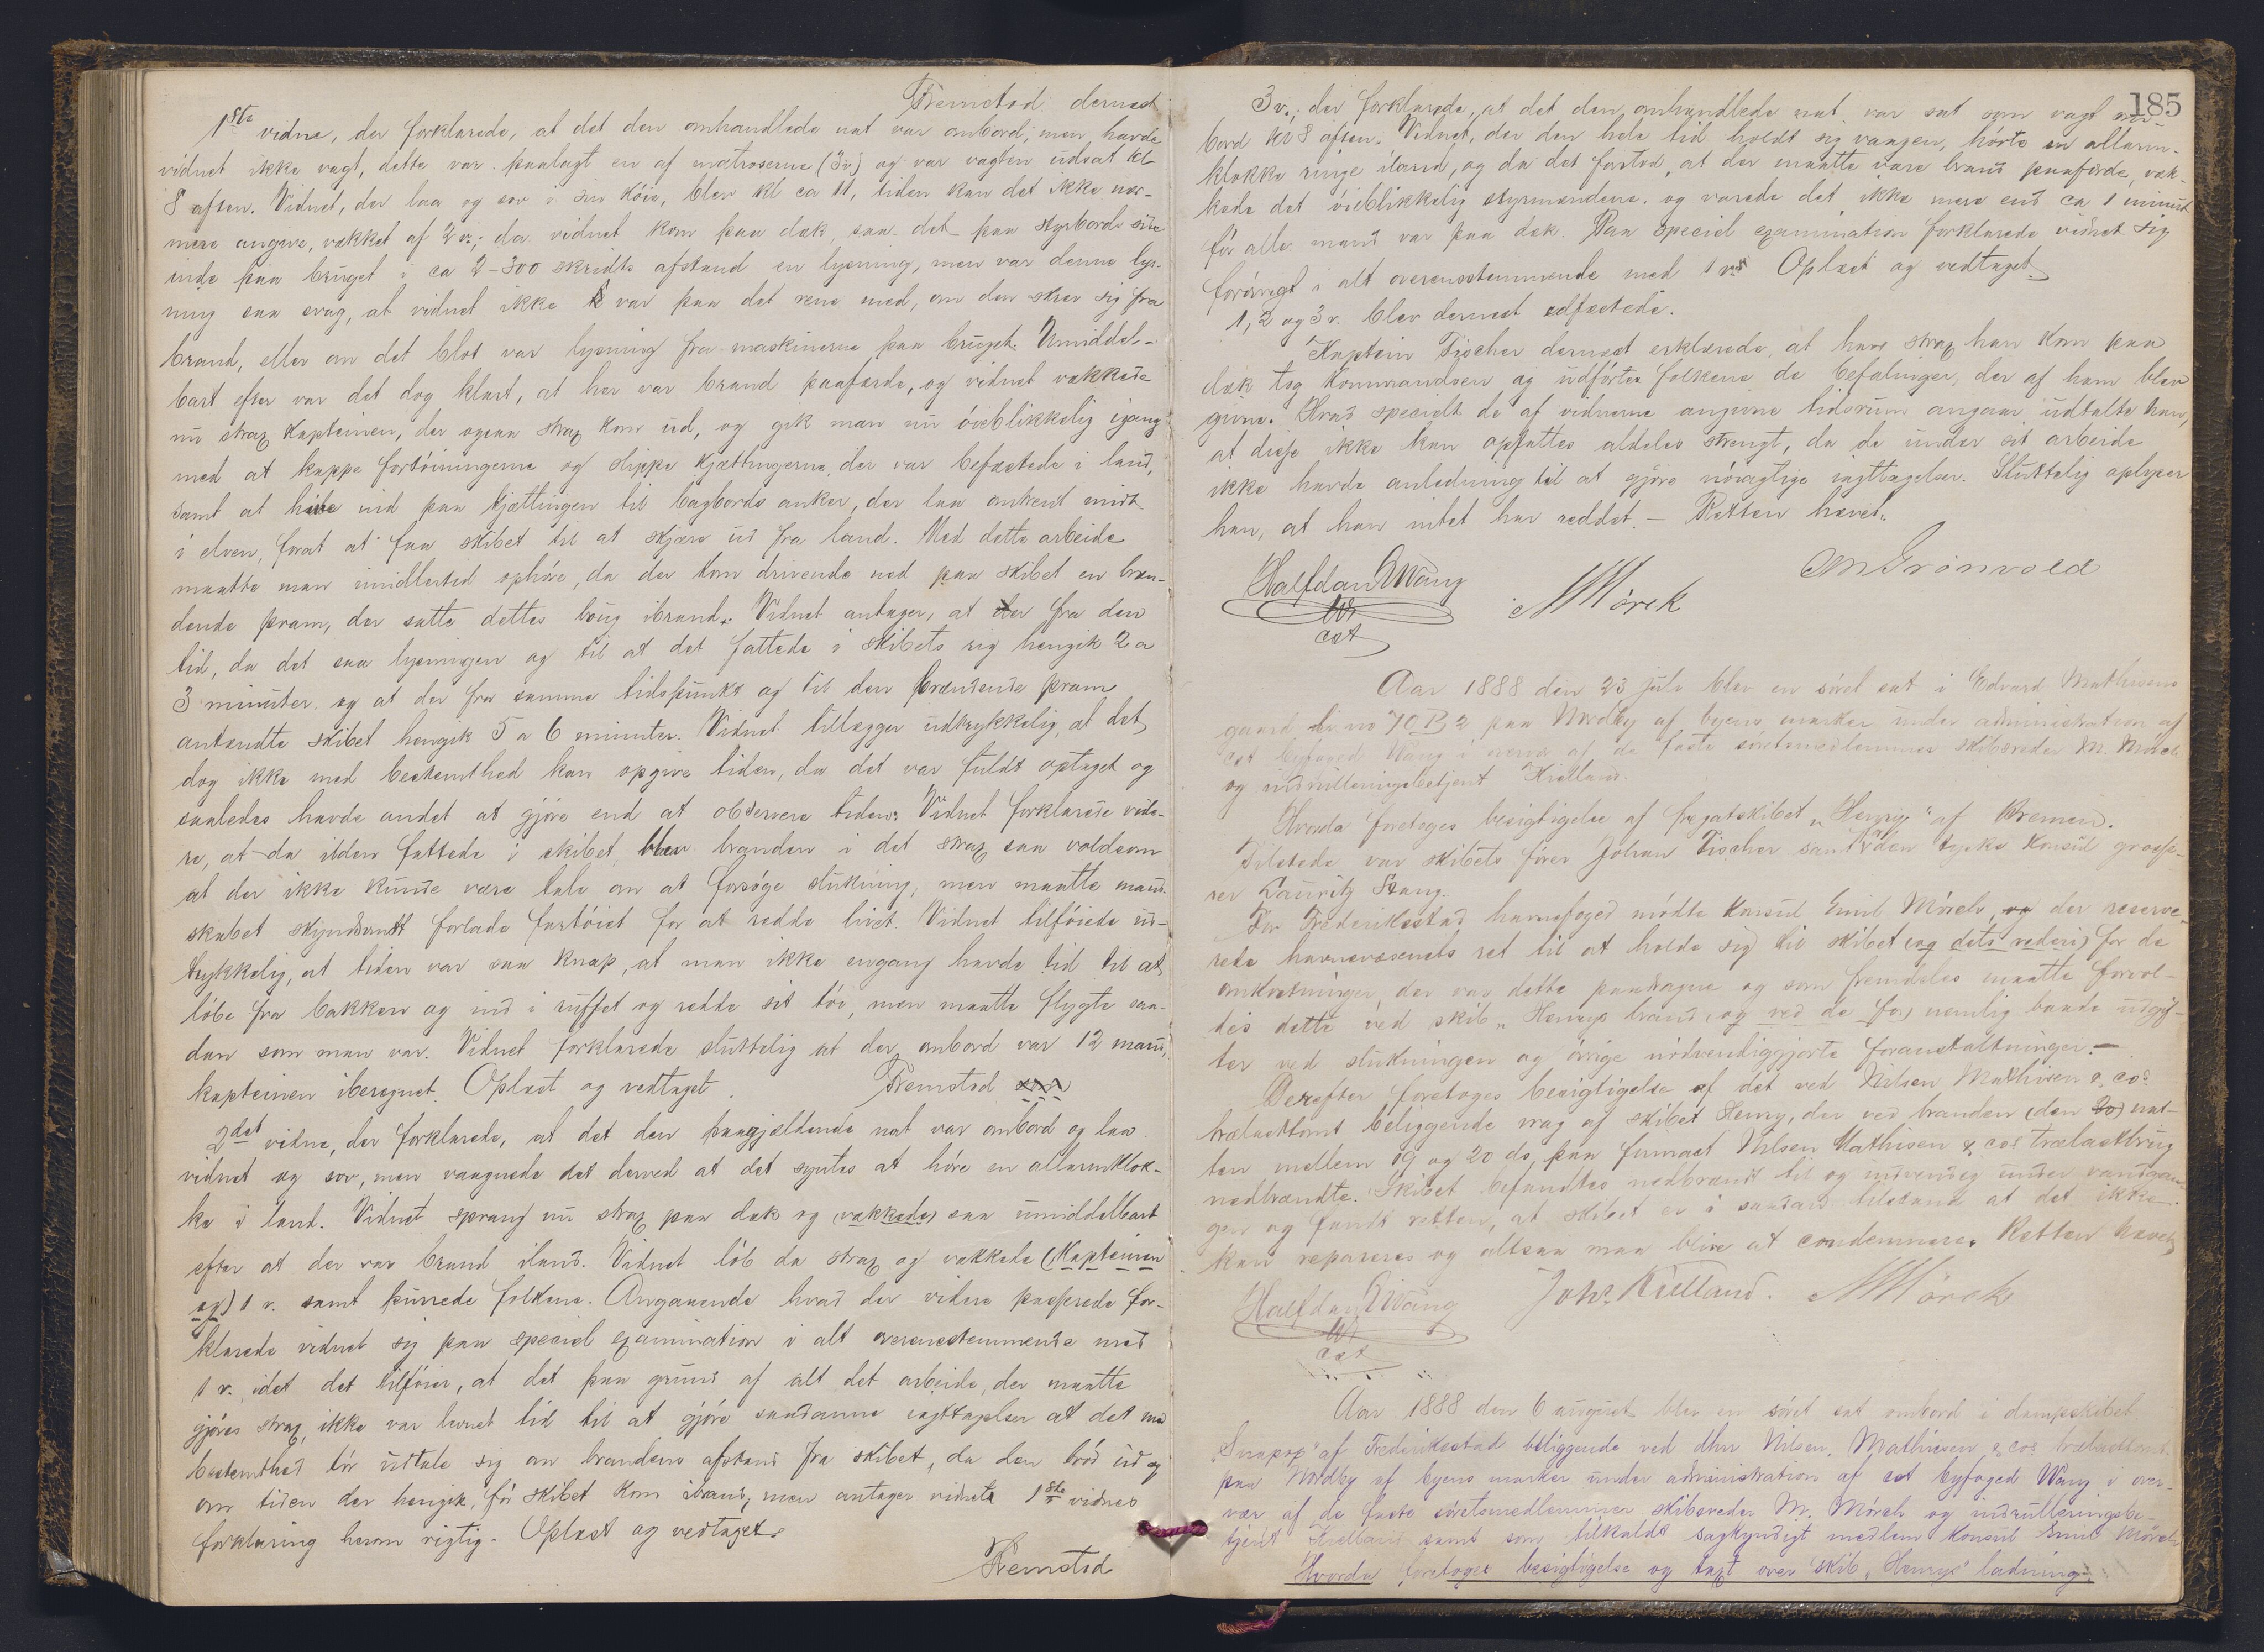 Fremstod dernæst
1ste vidne, der forklarede, at det den omhandlede nat var ombord; men havde
vidnet ikke vagt, dette var paalagt en af matroserne (3v) og var vagten udsat kl
8 aften. Vidnet, der laa og sov i sin köie, blev kl ca 11, tiden kan det ikke nær-
mere angive, vækket af 2 v.; da vidnet kom paa dæk, saa det paa styrbords side
inde paa bruget i ca 2-300 skridts afstand en lysning, men var denne lys-
ning saa svag, at vidnet ikke var paa det rene med, om den skrev sig fra
brand, eller om det blot var lysning fra maskinerne paa bruget. Umiddel-
bart efter var det dog klart, at her var brand paafærde, og vidnet vækkede
nu strax kapteinen, der ogsaa strax kom ud, og gik man nu öieblikkelig igang
med at kappe fortöiningerne og slippe kjættingerne, der var befæstede i land,
samt at hive ind paa kjættingen til bagbords anker, der laa omtrent midt
i elven, forat at faa skibet til at skjære ud fra land. Med dette arbeide
maatte man imidlertid ophöre, da der kom drivende ned paa skibet en bræn-
dende pram, der satte dettes boug ibrand. Vidnet antager, at der fra den
tid, da det saa lysningen og til at det fattede i skibets rig hengik 2 a
3 minuter og at der fra samme tidspunkt og til den brændende pram
antændte skibet hengik 5 a 6 minuter. Vidnet tillægger udtrykkelig, at det
dog ikke med bestemthed kan opgive tiden, da det var fuldt optaget og
saaledes havde andet at gjöre end at observere tiden. Vidnet forklarede vide-
re, at da ilden fattede i skibet, blev branden i det strax saa voldsom
at der ikke kunde være tale om at forsöge slukning, men maatte mand-
skabet skyndsomt forlade fartöiet for at redde livet. Vidnet tilföiede ud-
trykkelig, at tiden var saa knap, at man ikke engang havde tid til at
löbe fra bakken og ind i ruffet og redde sit töi, men maatte flygte saa-
dan som man var. Vidnet forklarede sluttelig at der ombord var 12 mand,
kapteinen iberegnet. Oplæst og vedtaget. Fremstod
2det vidne, der forklarede, at det den paagjældende nat var ombord og laa
vidnet og sov, men vaagnede det derved at det syntes at höre en allarmklok-
ke i land. Vidnet sprang nu strax paa dæk og (vækkede) saa umiddelbart
efter at der var brand iland. Vidnet löb da strax og vækkede (Kapteinen
og) 1 v. samt purrede folkene. Angaaende hvad der videre passerede for-
klarede vidnet sig paa speciel examination i alt overensstemmende med
1 v. idet det tilföier, at det paa grund af alt det arbeide, der maatte
gjöres strax, ikke var levnet tid til at gjöre saadanne iagttagelser at det med
bestemthed tör udtale sig om brandens afstand fra skibet, da den bröd ud og
om tiden der hengik, för skibet kom ibrand, men antager vidnets 1ste vidnes
forklaring herom rigtig. Oplæst og vedtaget.
Fremstod
185
3 v., der forklarede, at det den omhandlede nat var sat som vagt om-
bord kl 8 aften. Vidnet, der den hele tid holdt sig vaagen, hörte en allarm-
klokke ringe iland, og da det forstod, at der maatte være brand paafærde, væk-
kede det öieblikkelig styrmændene og varede det ikke mere end ca 1 minut
för alle mand var paa dæk. Paa speciel examination forklarede vidnet sig
forövrigt i alt overensstemmende med 1 v. Oplæst og vedtaget.
1, 2 og 3 v. blev dernæst edfæstede.
Kaptein Fischer dernæst erklærede, at have strax han kom paa
dæk tog Kommandoen og udförte folkene de befalinger, der af ham blev
givne. Hvad specielt de af vidnerne angivne tidsrum angaar udtalte han,
at disse ikke kan opfattes aldeles strengt, da de under sit arbeide
ikke havde anledning til at gjöre nöiagtige iagttagelser. Sluttelig oplyser
han, at han intet har reddet. — Retten hævet.
Halfdan Wang
cst
M Mörch
Grönvold
Aar 1888 den 23 juli blev en söret sat i Edvard Mathisens
gaard br no 70 B 2 paa Nordby af byens marker under administration af
cst byfoged Wang i overvær af de faste söretsmedlemmer skibsreder M. Mörch
og indrulleringsbetjent Kielland.
Hvorda foretoges besigtigelse af fregatskibet "Henry" af Bremen.
Tilstede var skibets förer Johan Fischer samt den tyske Konsul grosse-
rer Lauritz Stang.
For Frederiksstad havnefoged mödte Konsul Emil Mörch, der reserve-
rede havnevæsenets ret til at holde sig til skibet (og dets rederi) for de
omkostninger, der var dette paadragne og som fremdeles maatte forvol-
des dette ved skib "Henrys" brand (og ved de for) nemlig baade udgif-
ter ved slukningen og övrige nödvendiggjorte foranstaltninger. —
Derefter foretoges besigtigelse af det ved Nilsen Mathisen & cos
trælasttomt beliggende vrag af skibet Henry, der ved branden (den 20) nat-
ten mellem 19 og 20 ds. paa firmaet Nilsen Mathisen & cos trælastbrug
nedbrændte. Skibet befandtes nedbrændt til og indvendig under vandgan-
gen og fandt retten, at skibet er i saadan tilstand at det ikke
kan repareres og altsaa maa blive at condemnere. Retten hævet
Halfdan Wang
cst
Johs. Kielland.
M Mörch
Aar 1888 den 6 august blev en söret sat ombord i dampskibet
af Frederiksstad beliggende ved dhrr Nilsen, Mathiesen & cos trælasttomt
paa Nordby af byens marker under administration af cst byfoged Wang i over-
vær af de faste söretsmedlemmer skibsreder M. Mörch og indrulleringsbe-
tjent Kielland samt som tilkaldt sagkyndigt medlem Konsul Emil Mörch
Hvorda foretoges besigtigelse og taxt over skib "Henrys" ladning.